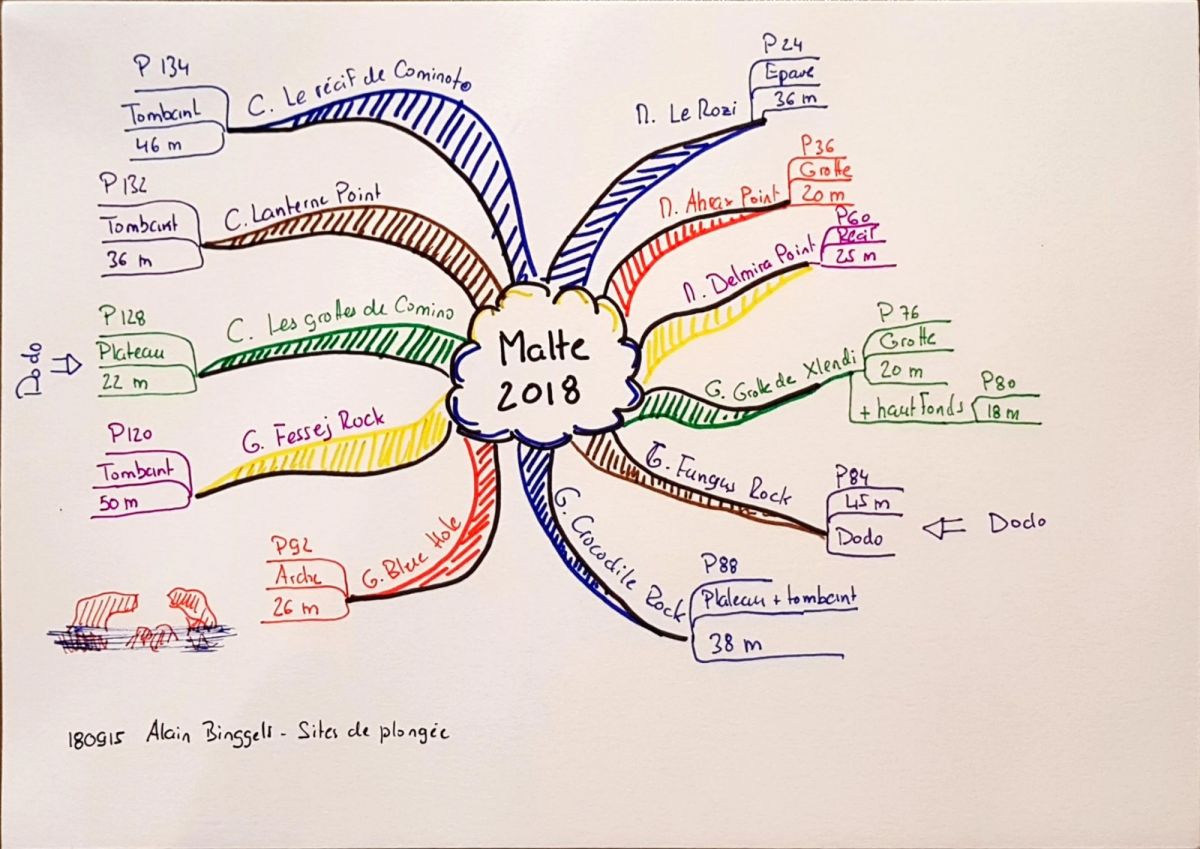 Malte
2018
M. Le Rozi
P24
Epave
36 m
M. Ahrax Point
P36
Grotte
20 m
M. Delmira Point
P60
Récif
25 m
G. Grotte de Xlendi
P 76
Grotte
20 m
+ haut fonds
P80
18 m
G. Fungus Rock
P84
45 m
Dodo
Dodo
G. Crocodile Rock
P88
Plateau + tombant
38 m
G. Blue Hole
P92
Arche
26 m
G. Fessej Rock
P120
Tombant
50 m
C. Les grottes de Comino
P128
Plateau
22 m
Dodo
C. Lanterne Point
P132
Tombant
36 m
C. Le récif de Cominoto
P 134
Tombant
46 m
180915 Alain Binggeli - Sites de plongée